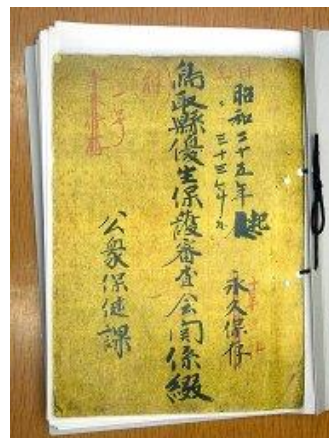 昭和二十五年起
三十三年
永久保存
鳥取縣優生保護審査会関係綴
公衆保健課
二号